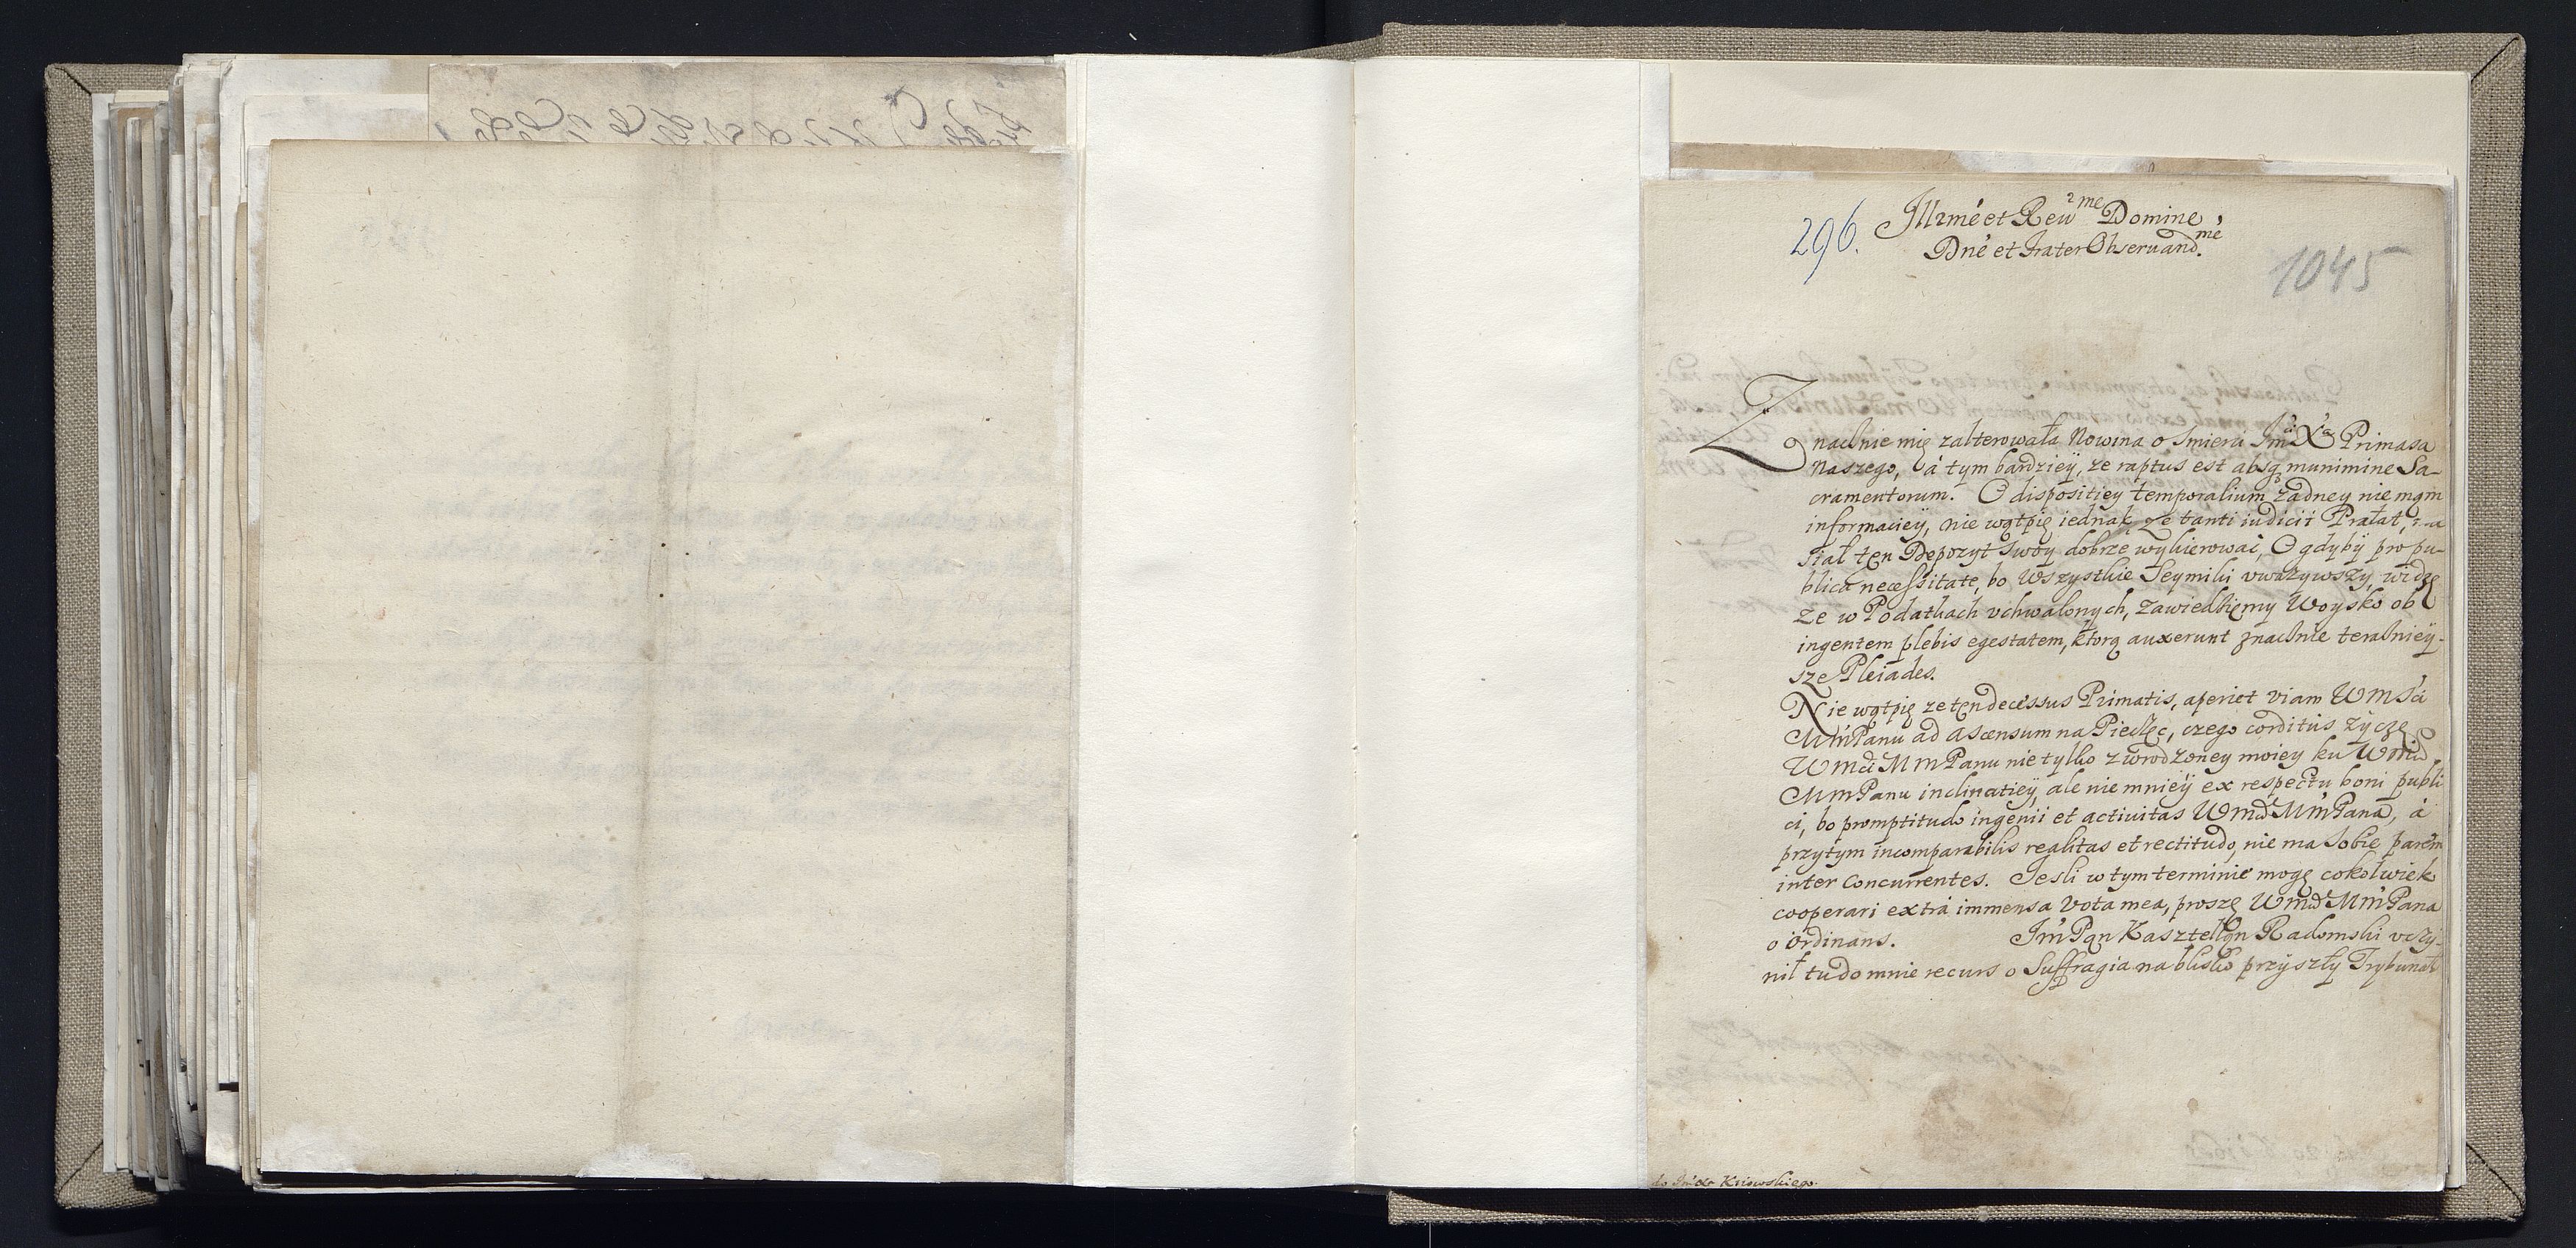 296.
Jllrmé et Reu^me Domine
Dne et Frater Obseruand^me.
1045
Znacżnie mię zalterowała Nowina o smierci Jm^ci X^a Primasa
Naszego, á tym bardzieÿ, ze raptus est absq munimine Sa-
cramentorum. O dispositiey temporalium żadney nie mąm
informacieÿ, nie wątpię iednak, ze tanti iudicii Prałat,
siał tęn Depozyt swoy dobrze wykierowáć, O gdybÿ pro pu-
blica necessitate, bo wszystkie Seymiki vwázywszy, widzę
ze w Podatkach vchwalonych, zawiedliẹmy Woysko ob
ingentem plebis egestatem, ktorą auxerunt znacżnie terazniey-
sze Pleiades.
Nie wątpię ze tęn decessus Primatis, aperiet viam WMSci
MmPanu ad ascensum na Pieczęc, czego corditùs życzę
WmciMmPanu nie tylko z wrodzoney moiey ku Wmci
MmPanu inclinatieÿ, ale nie mnieÿ ex respectu boni publi
ci, bo promptitudo ingenii et actiuitas WmciMmPana, á
przytym incomparabilis realitas et rectitudo, nie ma sobie parem
inter Concurrentes. Jesli w tym terminie mogę cokolwiek
cooperari extrá immensa vota mea, proszę WmciMmPana
o ordinans. JmPąn Kasztelląn Radomski vczÿ-
nił tu do mnie recurs o Suffragia na blisko przÿszłÿ Trybunał
do Jm X Kiiowskiego.